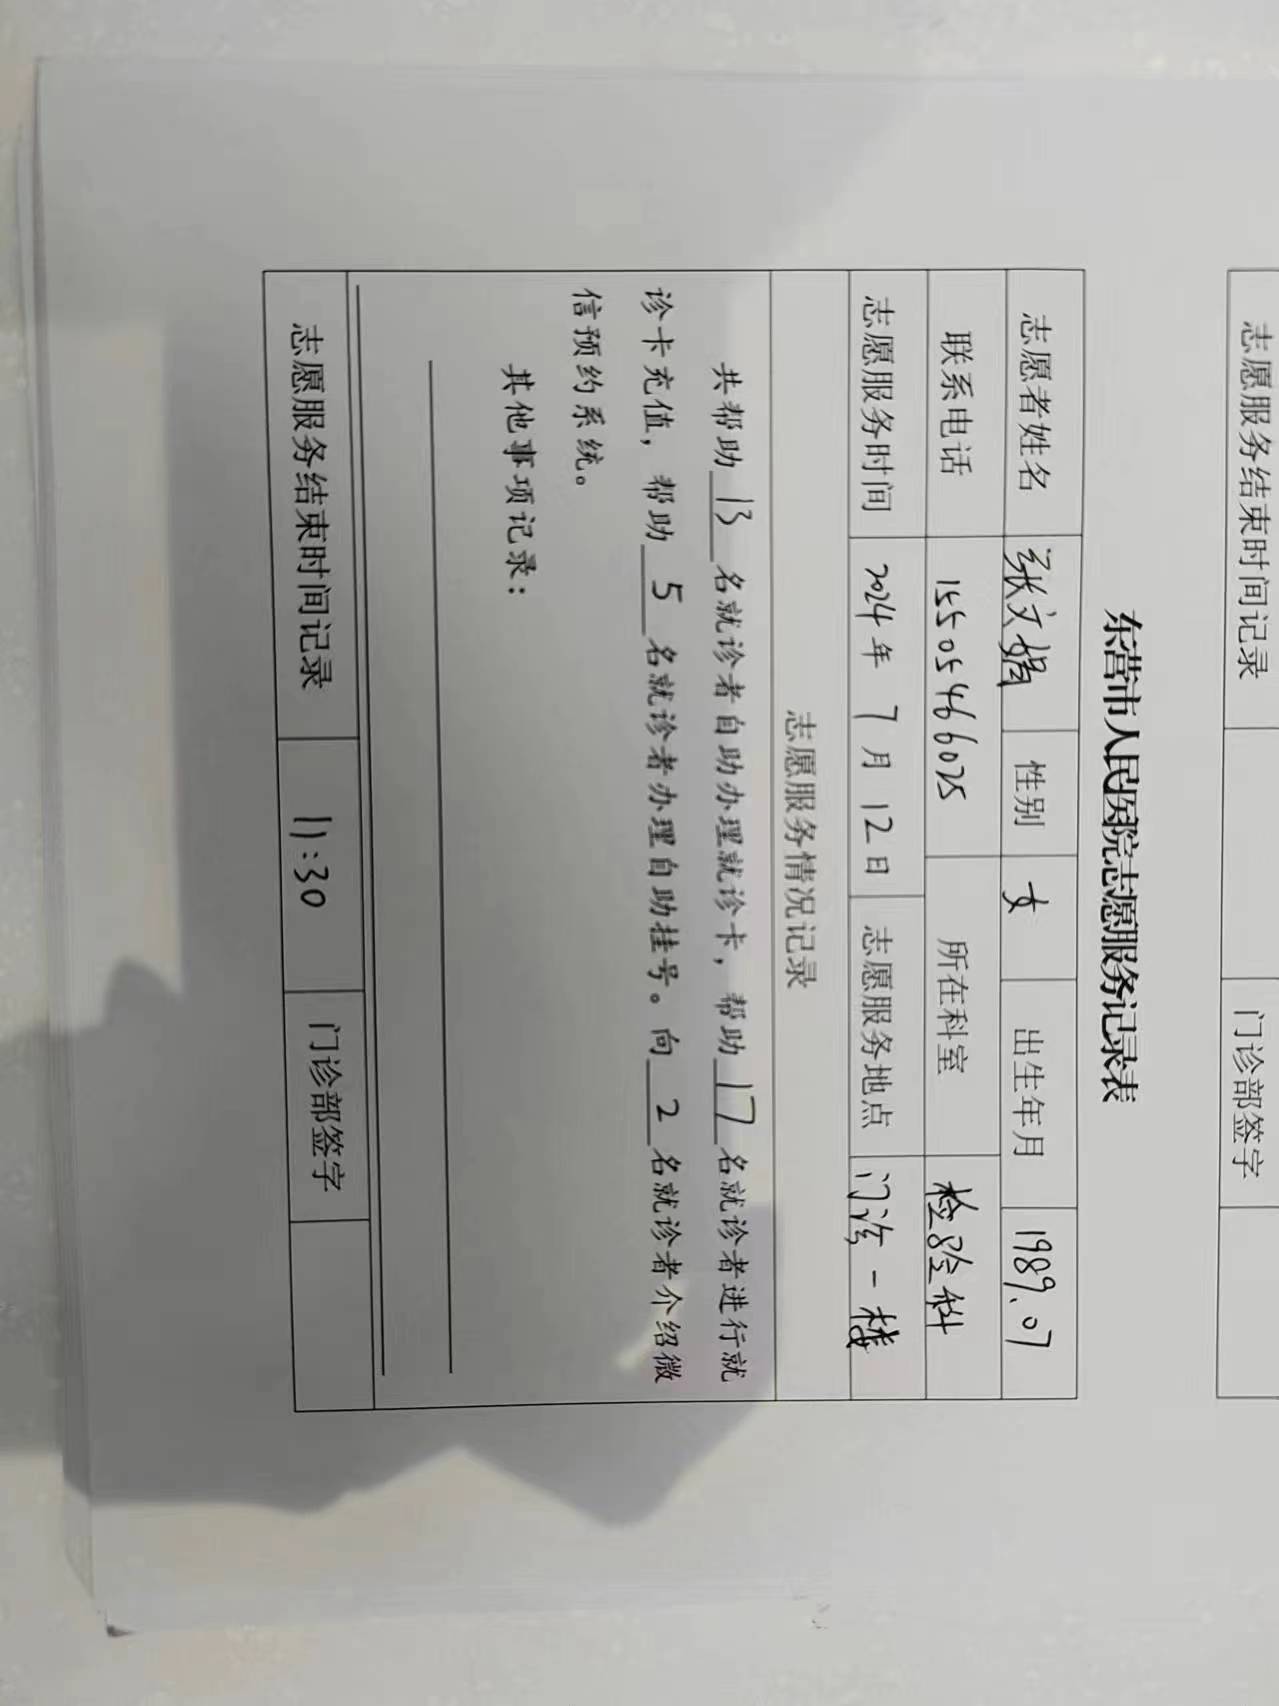 志愿服务结束时间记录 门诊部签字
东营市人民医院志愿服务记录表
志愿者姓名 张文娟 性别 女 出生年月 1989.07
联系电话 15505466025 所在科室 检验科
志愿服务时间 2024年 7月 12日 志愿服务地点 门诊一楼
志愿服务情况记录
共帮助 13 名就诊者自助办理就诊卡，帮助 17 名就诊者进行就
诊卡充值，帮助 5 名就诊者办理自助挂号。向 2 名就诊者介绍微
信预约系统。
其他事项记录：
志愿服务结束时间记录 11:30 门诊部签字